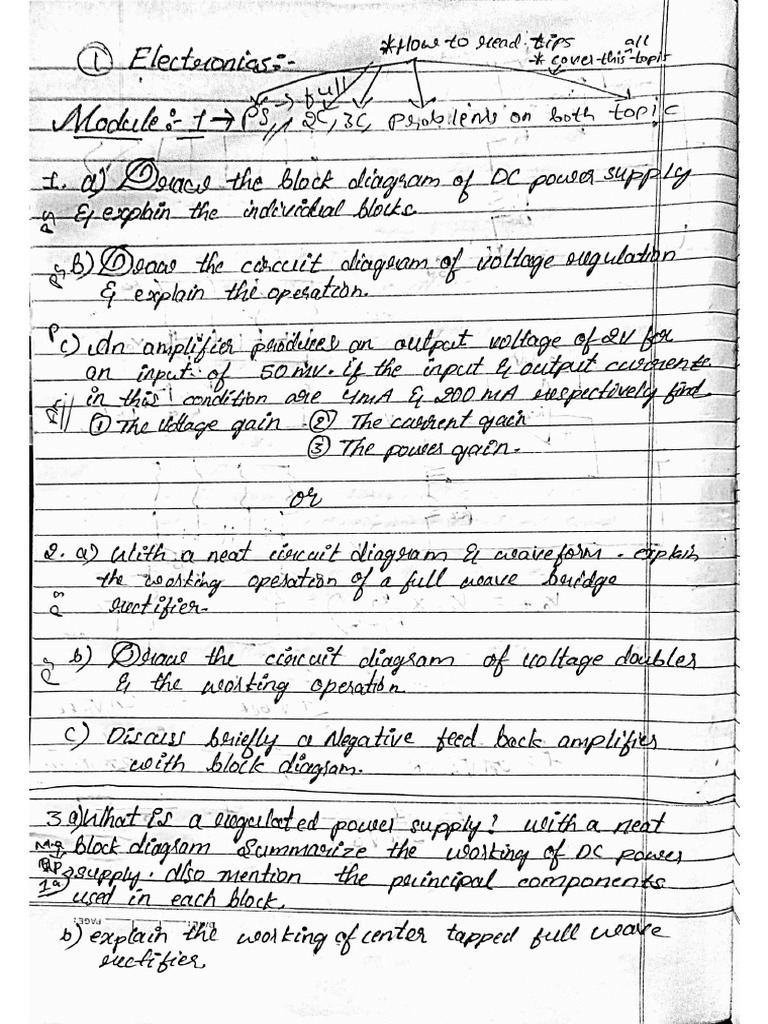 ① Electronics:-
*How to read tips
* cover this all topic
Module:- 1 → PS, → full 2C, 3C, problems on both topic
1. a) Draw the block diagram of DC power supply
& explain the individual blocks.
b) Draw the circuit diagram of voltage regulation
& explain the operation.
c) An amplifier produces an output voltage of 2V for
an input of 50 mv. if the input & output currents
in this condition are 4mA & 200 mA respectively find
① The voltage gain ② The current gain
③ The power gain.
or
2. a) With a neat circuit diagram & waveform. explain
the working operation of a full wave bridge
rectifier.
b) Draw the circuit diagram of voltage doubler
& the working operation.
c) Discuss briefly a Negative feed back amplifier
with block diagram.
3 a) What is a regulated power supply? with a neat
block diagram summarize the working of DC power
supply. Also mention the principal components
used in each block.
b) explain the working of center tapped full wave
rectifier.